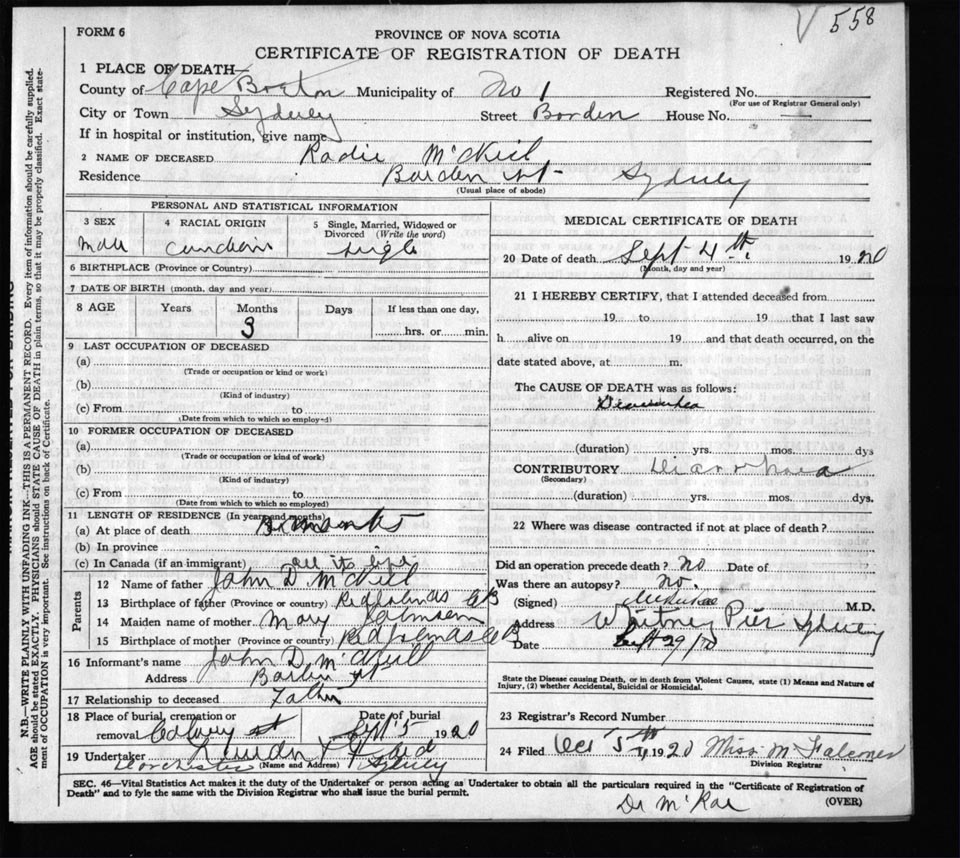 558
FORM 6
PROVINCE OF NOVA SCOTIA
CERTIFICATE OF REGISTRATION OF DEATH
1 PLACE OF DEATH—
County of Cape Breton Municipality of No 1 Registered No.
(For use of Registrar General only)
City or Town Sydney Street Borden House No. —
If in hospital or institution, give name
2 NAME OF DECEASED Radie McNeil
Residence Borden St- Sydney
(Usual place of abode)
PERSONAL AND STATISTICAL INFORMATION
3 SEX 4 RACIAL ORIGIN 5 Single, Married, Widowed or Divorced (Write the word)
Male single
6 BIRTHPLACE (Province or Country)
7 DATE OF BIRTH (month, day and year)
8 AGE Years Months Days If less than one day,
3 hrs. or min.
9 LAST OCCUPATION OF DECEASED
(a)
(Trade or occupation or kind or work)
(b)
(Kind of industry)
(c) From to
(Date from which to which so employed)
10 FORMER OCCUPATION OF DECEASED
(a)
(Trade or occupation or kind of work)
(b)
(Kind of industry)
(c) From to
(Date from which to which so employed)
11 LENGTH OF RESIDENCE (In years and months)
(a) At place of death
(b) In province
(c) In Canada (if an immigrant) all its life
Parents
12 Name of father John D McNeil
13 Birthplace of father (Province or country) CB
14 Maiden name of mother Mary Johnson
15 Birthplace of mother (Province or country) CB
16 Informant's name John D McNeill
Address St
17 Relationship to deceased Father
18 Place of burial, cremation or removal Date of burial
Sept 5 1920
19 Undertaker
Dorchester (Name and Address) Sydney
MEDICAL CERTIFICATE OF DEATH
20 Date of death Sept 4th 1920
(Month, day and year)
21 I HEREBY CERTIFY, that I attended deceased from
19 to 19 that I last saw
h alive on 19 and that death occurred, on the
date stated above, at m.
The CAUSE OF DEATH was as follows:
(duration) yrs. mos. dys
CONTRIBUTORY Diarrhoea
(Secondary)
(duration) yrs. mos. dys.
22 Where was disease contracted if not at place of death?
Did an operation precede death? No Date of
Was there an autopsy? No.
(Signed) M.D.
Address Whitney Pier Sydney
Date Sept 29/20
State the Disease causing Death, or in death from Violent Causes, state (1) Means and Nature of
Injury, (2) whether Accidental, Suicidal or Homicidal.
23 Registrar's Record Number
24 Filed Oct 5th 1920 Miss M Falconer
Division Registrar
SEC. 46—Vital Statistics Act makes it the duty of the Undertaker or person acting as Undertaker to obtain all the particulars required in the "Certificate of Registration of
Death" and to fyle the same with the Division Registrar who shall issue the burial permit.
(OVER)
Dr McRae
N.B.—WRITE PLAINLY WITH UNFADING INK—THIS IS A PERMANENT RECORD. Every item of information should be carefully supplied.
AGE should be stated EXACTLY. PHYSICIANS should STATE CAUSE OF DEATH in plain terms, so that it may be properly classified. Exact state-
ment of OCCUPATION is very important. See instructions on back of Certificate.